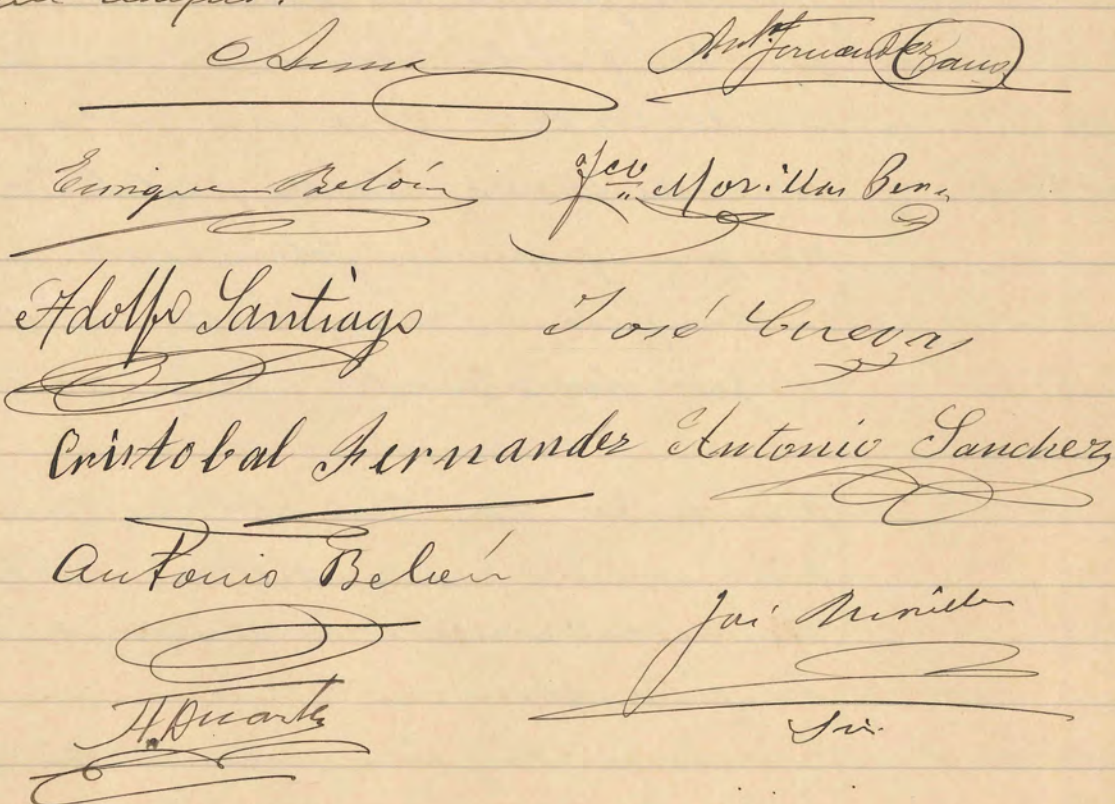 Antº Fernandez Cano
Enrique Belón Fco Morillas
Adolfo Santiago José Cueva
Cristobal Fernandez Antonio Sanchez
Antonio Belón
José
A. Duarte
Srio.